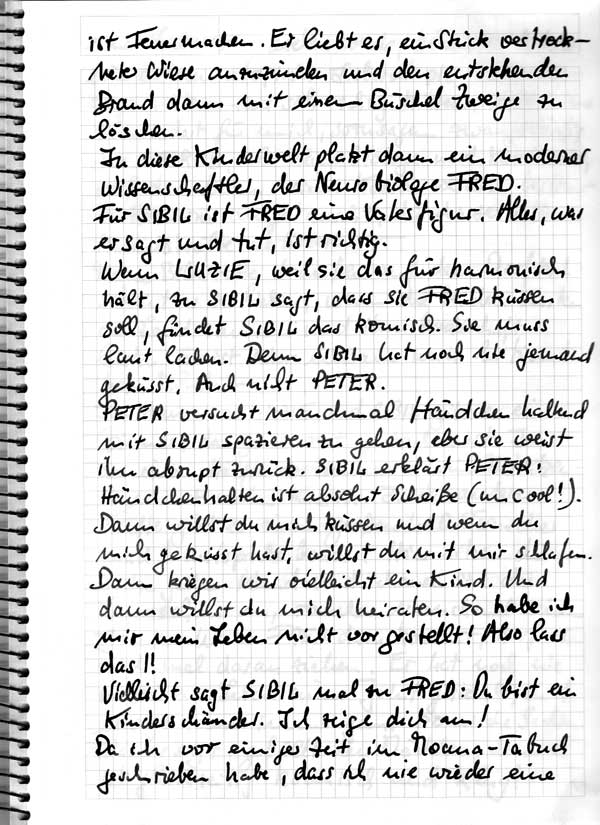 ist Feuermachen. Er liebt es, ein Stück vertrock-
nete Wiese anzuzünden und den entstehenden
Brand dann mit einem Büschel Zweige zu
löschen.
In diese Kinderwelt platzt dann ein moderner
Wissenschaftler, der Neurobiologe FRED.
Für SIBIL ist FRED eine Vaterfigur. Alles, was
er sagt und tut, ist richtig.
Wenn LUZIE, weil sie das für harmonisch
hält, zu SIBIL sagt, dass sie FRED küssen
soll, findet SIBIL das komisch. Sie muss
laut lachen. Denn SIBIL hat noch nie jemand
geküsst. Auch nicht PETER.
PETER versucht manchmal Händchen haltend
mit SIBIL spazieren zu gehen, aber sie weist
ihn abrupt zurück. SIBIL erklärt PETER:
Händchenhalten ist absolut Scheiße (uncool!).
Dann willst du mich küssen und wenn du
mich geküsst hast, willst du mit mir schlafen.
Dann kriegen wir vielleicht ein Kind. Und
dann willst du mich heiraten. So habe ich
mir mein Leben nicht vorgestellt! Also lass
das!!
Vielleicht sagt SIBIL mal zu FRED: Du bist ein
Kinderschänder. Ich zeige dich an!
Da ich vor einiger Zeit im Moana-Tabuch
geschrieben habe, dass ich nie wieder eine